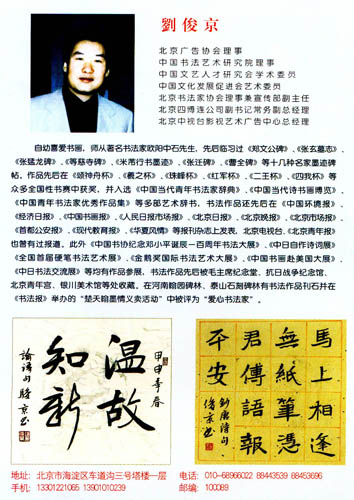 劉俊京
北京广告协会理事
中国书法艺术研究院理事
中国文艺人才研究会学术委员
中国文化发展促进会艺术委员
北京书法家协会理事兼宣传部副主任
北京四博连公司副书记常务副总经理
北京中视台影视艺术广告中心总经理
自幼喜爱书画，师从著名书法家欧阳中石先生，先后临习过《郑文公碑》、《张玄墓志》、
《张猛龙碑》、《等慈寺碑》、《米芾行书墨迹》、《张迁碑》、《曹全碑》等十几种名家墨迹碑
帖，作品先后在《颂神舟杯》、《羲之杯》、《珠峰杯》、《红军杯》、《二王杯》、《四我杯》等
众多全国性书赛中获奖，并入选《中国当代青年书法家辞典》、《中国当代诗书画博览》、
《中国青年书法家优秀作品集》等多部艺术辞书，书法作品还先后在《中国环境报》、
《经济日报》、《中国书画报》、《人民日报市场报》、《北京日报》、《北京晚报》、《北京市场报》、
《首都公安报》、《现代教育报》、《华夏风情》等报刊杂志上发表，北京电视台、《北京青年报》
也曾有过报道，此外《中国书协纪念邓小平诞辰一百周年书法大展》、《中日自作诗词展》
《全国首届硬笔书法艺术展》、《金鹅奖国际书法艺术大展》、《中国书画赴美国大展》、
《中日书法交流展》等均有作品参展，书法作品先后被毛主席纪念堂、抗日战争纪念馆、
北京青年宫、银川美术馆等处收藏。在河南翰园碑林、泰山石刻碑林有书法作品刊石并在
《书法报》举办的“楚天翰墨情义卖活动”中被评为“爱心书法家”。
甲申季春
温故
知新
論語句 俊京书
馬上相逢
無紙筆憑
君傳語報
平安
鈔唐詩句
俊京书
地址：北京市海淀区车道沟三号塔楼一层
电话：010—68966022 88443539 88453696
手机：13301221065 13901010239
邮编：100089